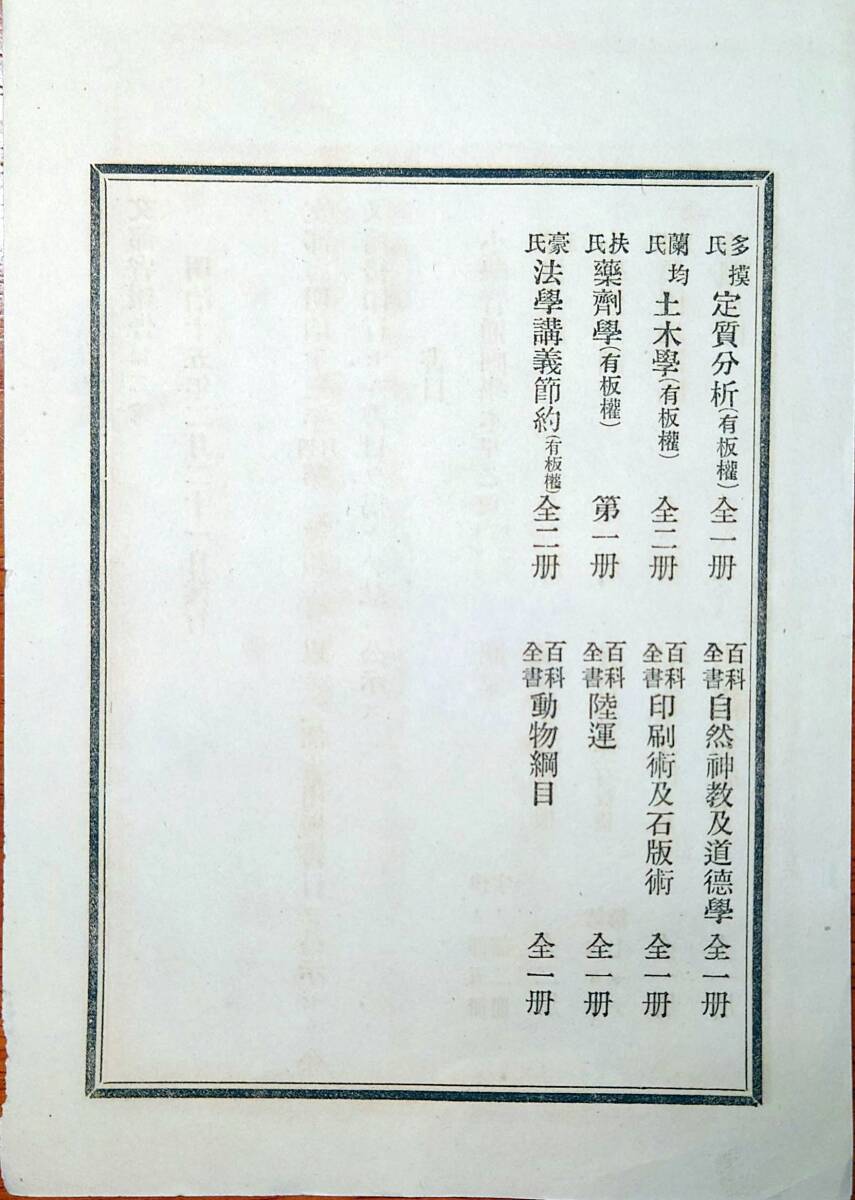 多摸氏定質分析(有板權)全一册
蘭均氏土木學(有板權)全二册
扶氏藥劑學(有板權)第一册
豪氏法學講義節約(有板權)全二册
百科全書自然神教及道德學全一册
百科全書印刷術及石版術全一册
百科全書陸運全一册
百科全書動物綱目全一册